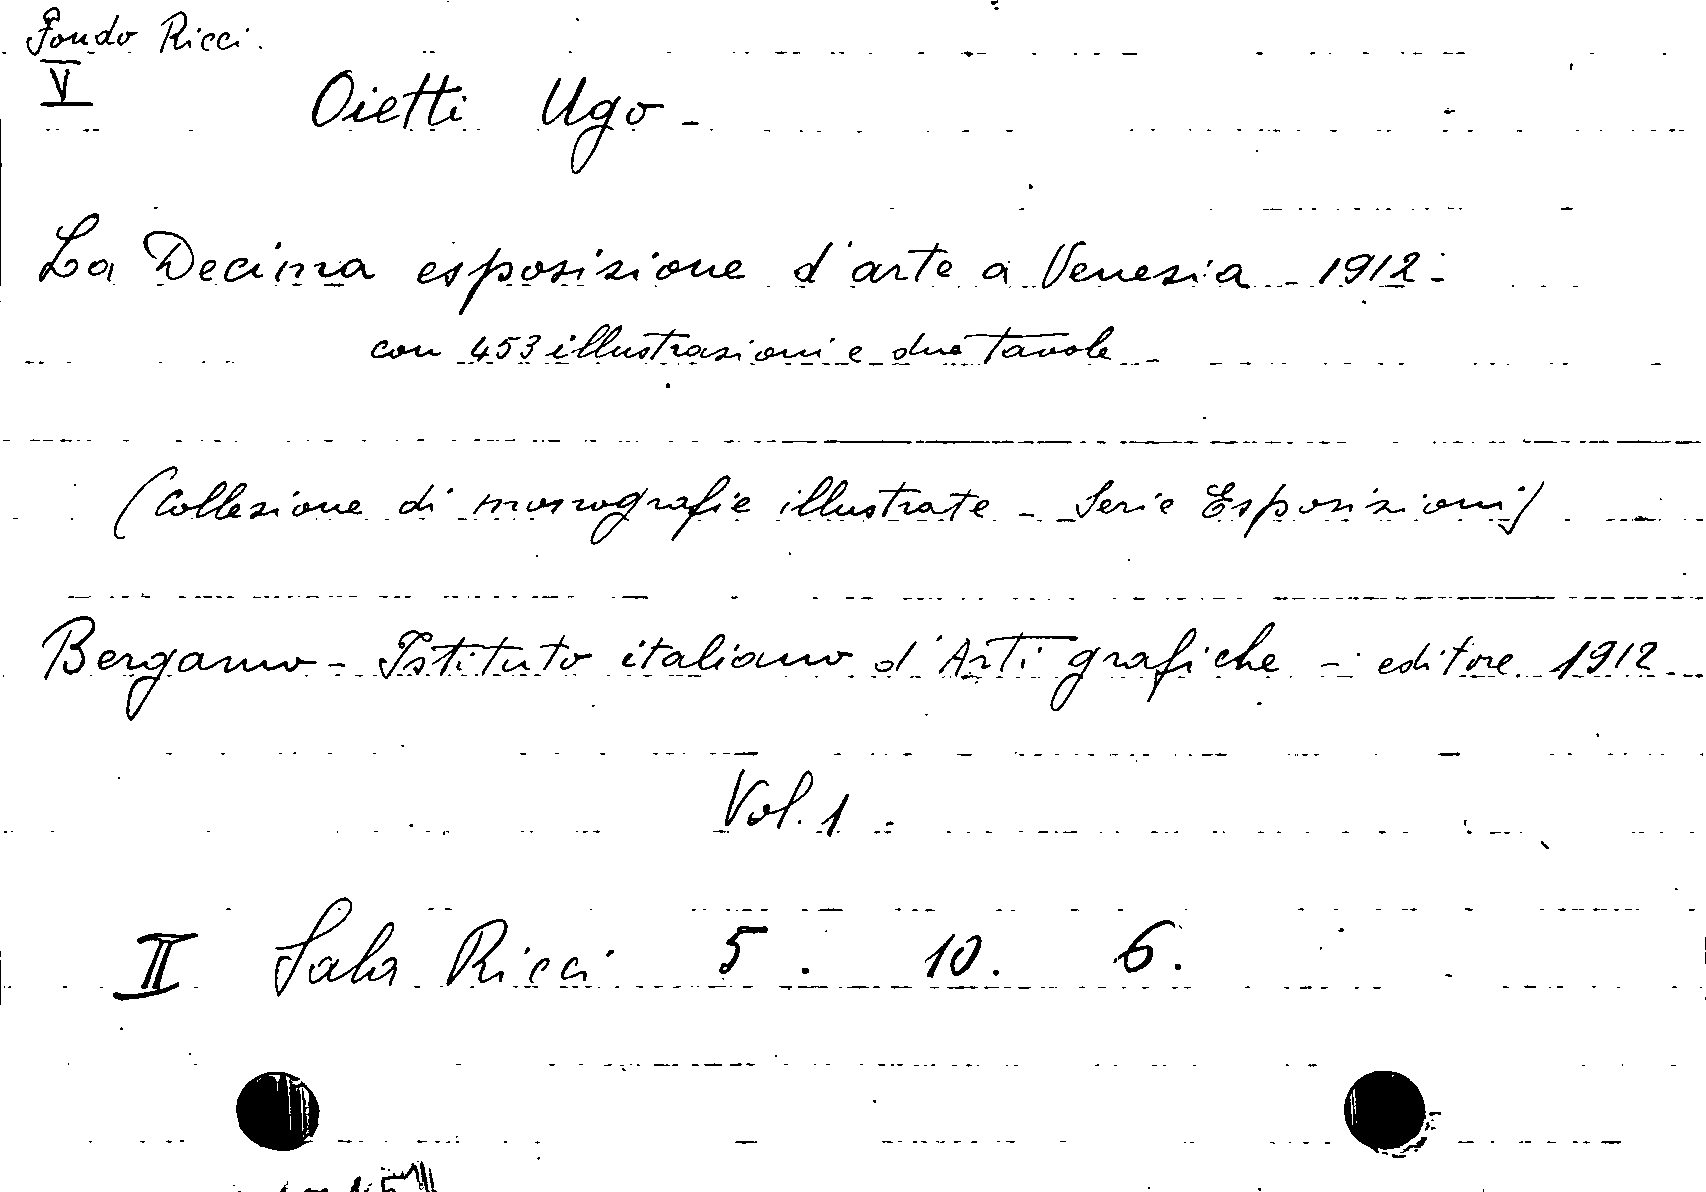 Fondo Ricci.
V
Oietti Ugo -
La Decima esposizione d'arte a Venezia - 1912 -
con 453 illustrazioni e due tavole -
(Collezione di monografie illustrate - Serie Esposizioni)
Bergamo - Istituto italiano d'Arti grafiche - editore 1912
Vol. 1 -
II Sala Ricci 5 . 10 . 6 .